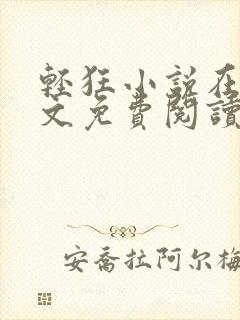 輕狂小说在
文免費閱讀
安喬拉阿尔梅